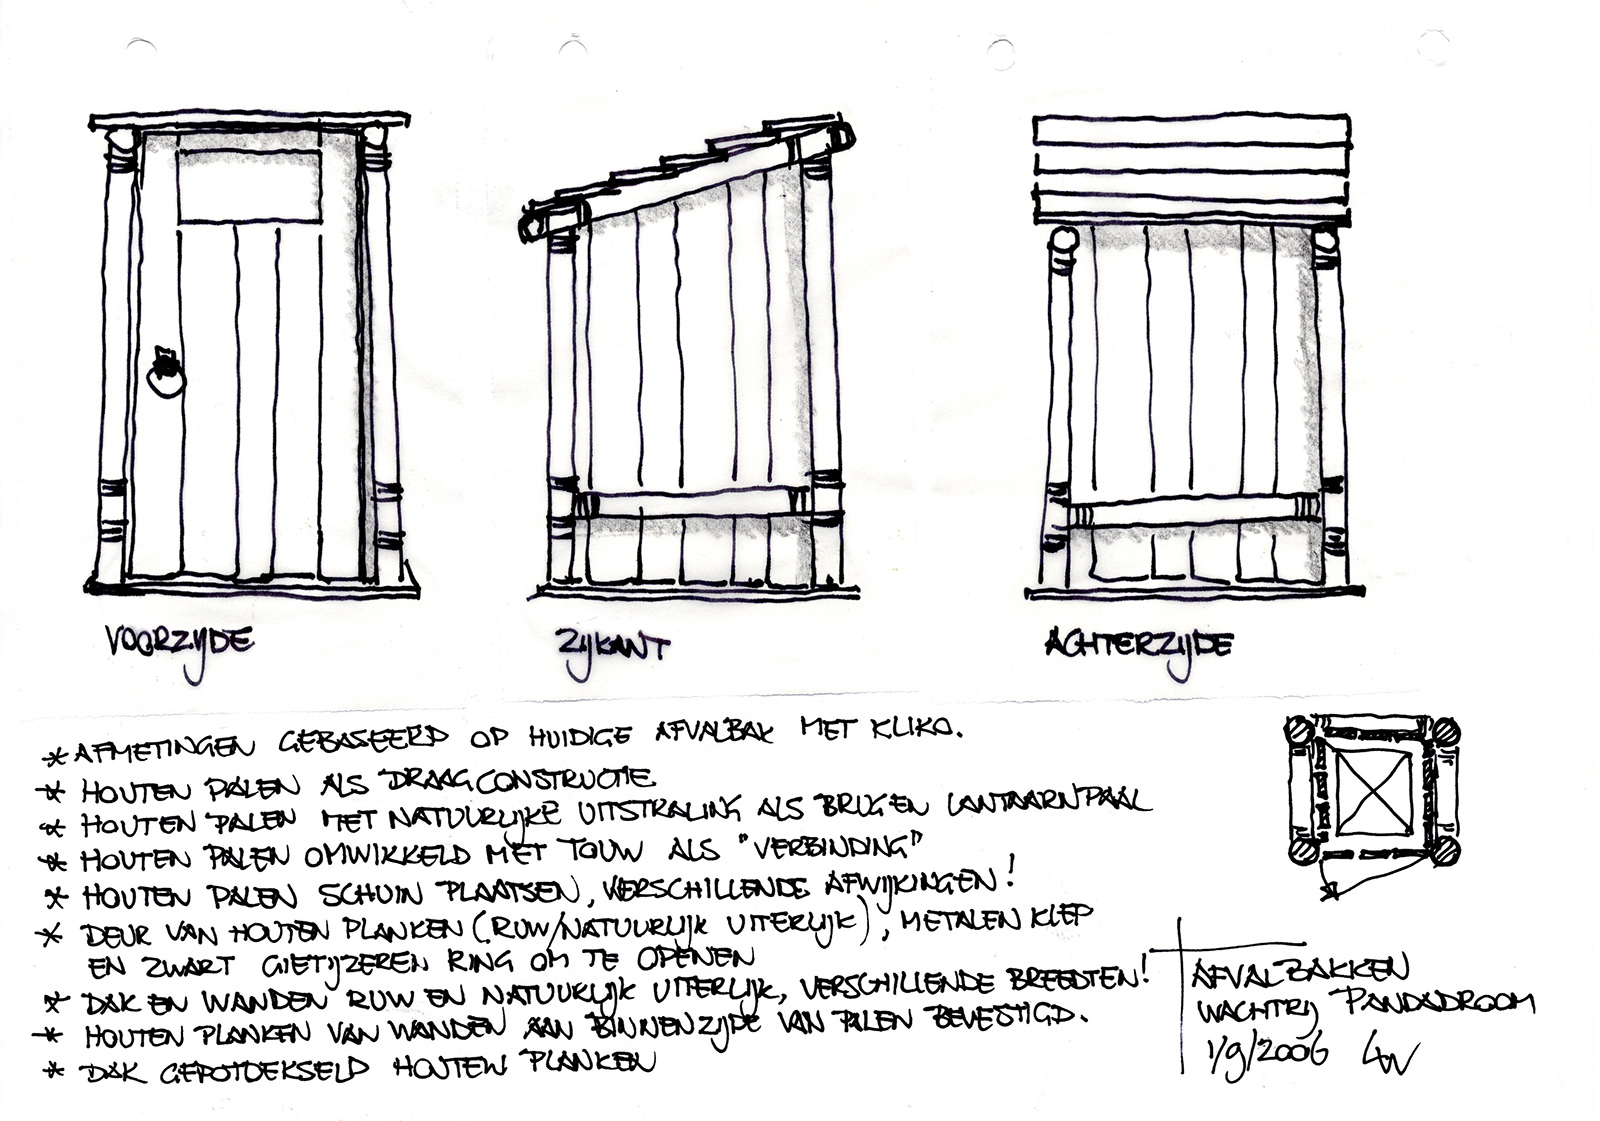 VOORZIJDE
ZIJKANT
ACHTERZIJDE
* AFMETINGEN GEBASEERD OP HUIDIGE AFVALBAK MET KLIKO.
* HOUTEN PALEN ALS DRAAGCONSTRUCTIE
* HOUTEN PALEN MET NATUURLIJKE UITSTRALING ALS BRUGEN LANTAARNPAAL
* HOUTEN PALEN OMWIKKELD MET TOUW ALS "VERBINDING"
* HOUTEN PALEN SCHUIN PLAATSEN, VERSCHILLENDE AFWIJKINGEN!
* DEUR VAN HOUTEN PLANKEN (RUW/NATUURLIJK UITERLIJK), METALEN KLEP
EN ZWART GIETIJZEREN RING OM TE OPENEN
* DAK EN WANDEN RUW EN NATUURLIJK UITERLIJK, VERSCHILLENDE BREEDTEN!
* HOUTEN PLANKEN VAN WANDEN AAN BINNENZIJDE VAN PALEN BEVESTIGD.
* DAK GEPOTDEKSELD HOUTEN PLANKEN
AFVALBAKKEN
WACHTRIJ PANDADROOM
1/9/2006